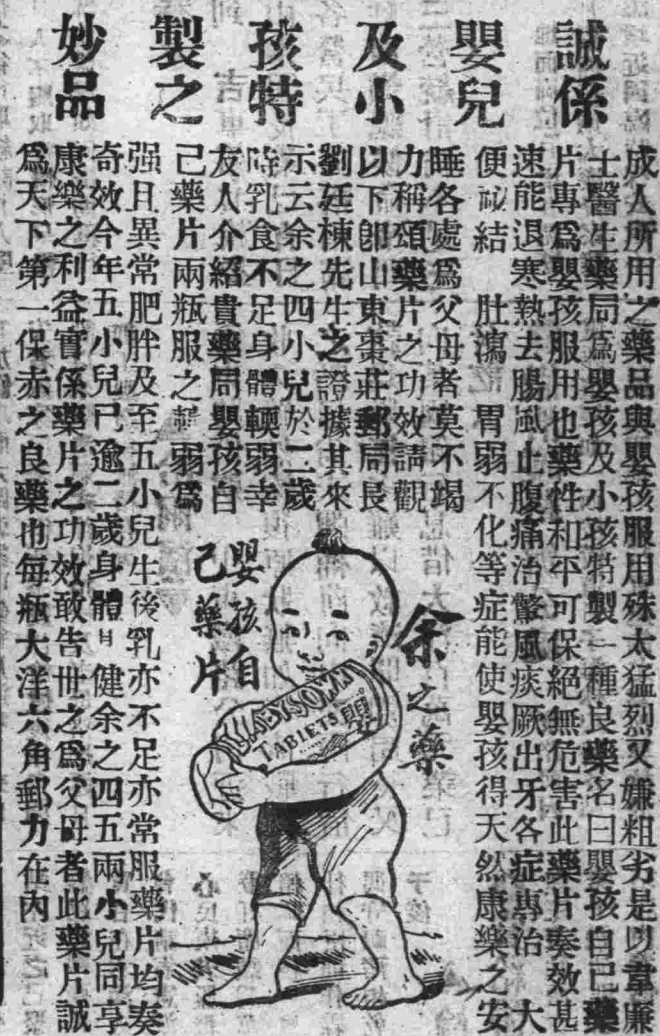 誠係
嬰兒
及小
孩特
製之
妙品
成人所用之藥品與嬰孩服用殊太猛烈又嫌粗劣是以韋廉
士醫生藥局爲嬰孩及小孩特製一種良藥名曰嬰孩自己藥
片專爲嬰孩服用也藥性和平可保絕無危害此藥片奏效甚
速能退寒熱去腸風止腹痛治驚風痰厥出牙各症專治 大
便祕結 肚瀉 胃弱不化等症能使嬰孩得天然康樂之安
睡各處爲父母者莫不竭
力稱頌藥片之功效請觀
以下卽山東棗莊郵局長
劉廷棟先生之證據其來
示云余之四小兒於二歲
時乳食不足身體輭弱幸
友人介紹貴藥局嬰孩自
己藥片兩瓶服之 弱爲
强且異常肥胖及至五小兒生後乳亦不足亦常服藥片均奏
奇效今年五小兒已逾二歲身體日健余之四五兩小兒同享
康樂之利益實係藥片之功效敢告世之爲父母者此藥片誠
爲天下第一保赤之良藥也每瓶大洋六角郵力在內
余之藥
BABY'S OWN
TABLETS
嬰孩自
己藥片